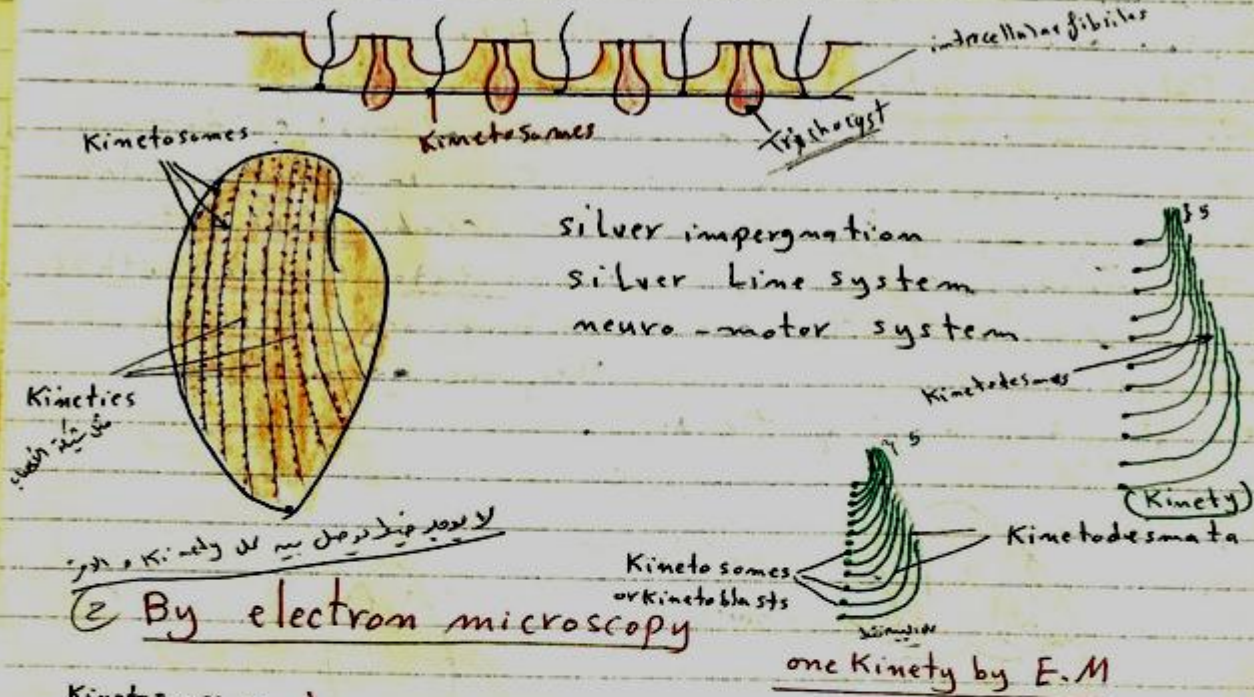 intracellular fibriles
Kinetosomes
Kinetosomes
Trichocyst
silver impergnation
silver Line system
neuro-motor system
} 5
Kinetodesmes
(Kinety)
Kineties
5
Kinetodesmata
Kinetosomes
or Kinetoblasts
لا يوجد خيط يوصل بين كل Kinety و
② By electron microscopy
one Kinety by E.M